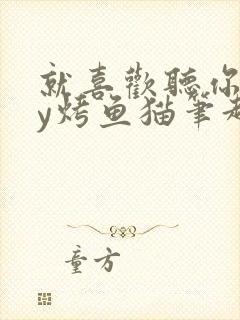 就喜歡聽你
y烤鱼猫筆趣
童方